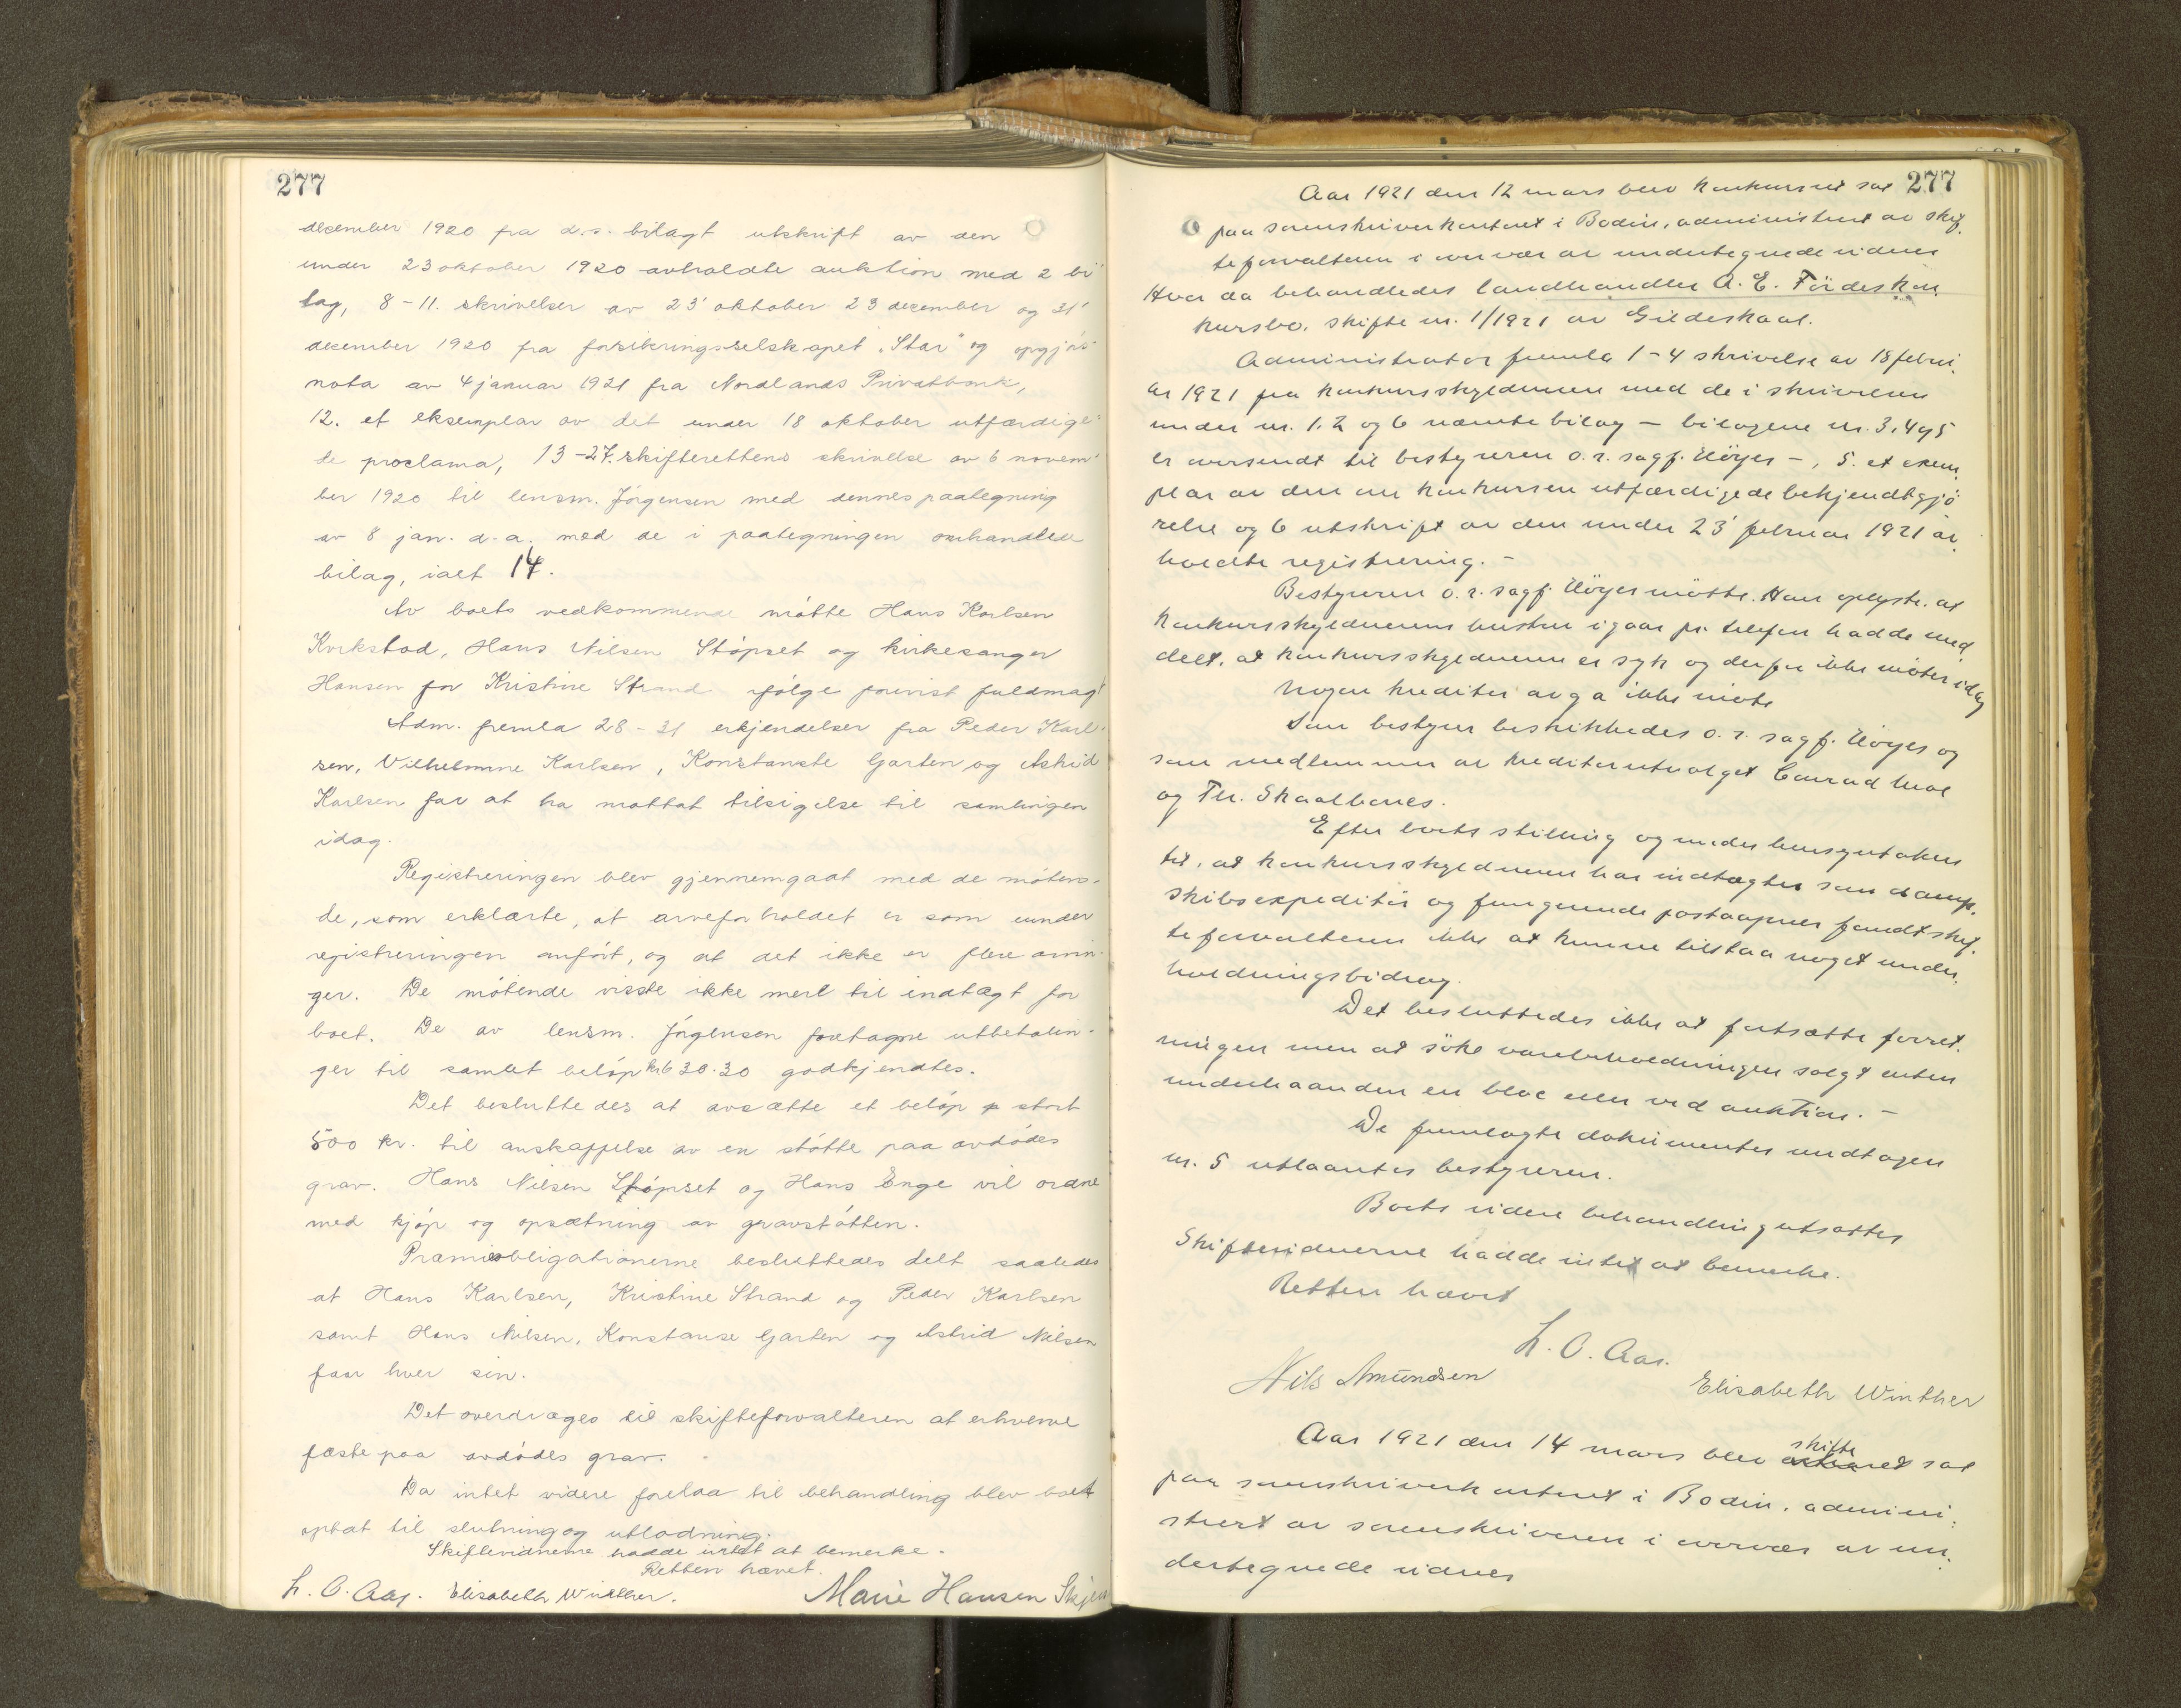 277
december 1920 fra d.s. bilagt utskrift av den
under 23 oktober 1920 avholdte auktion med 2 bi-
lag, 8-11. skrivelser av 23' oktober 23 december og 31'
december 1920 fra forsikringsselskapet "Star" og opgjörs-
nota av 4 januar 1921 fra Nordlands Privatbank,
12. et eksemplar av det under 18 oktober utfærdige-
de proclama, 13-27. skifterettens skrivelse av 6 novem-
ber 1920 til lensm. Jörgensen med dennes paategning
av 8 jan. d.a. med de i paategningen omhandlede
bilag, ialt 14.
Av boets vedkommende mötte Hans Karlsen
Kvikstad, Hans Nilsen Stöpset og kirkesanger
Hansen for Kristine Strand ifölge forevist fuldmagt
Adm. fremla 28-31 erkjendelser fra Peder Karl-
sen, Vilhelmine Karlsen, Konstanste Garten og Astrid
Karlsen for at ha mottat tilsigelse til samlingen
idag.
Registreringen blev gjennemgaat med de möten-
de, som erklærte, at arveforholdet er som under
registreringen anfört, og at det ikke er flere arvin-
ger. De mötende visste ikke merl til indtægt for
boet. De av lensm. Jörgensen foretagne utbetalin-
ger til samlet belöp kr 630.30 godkjendtes.
Det besluttedes at avsætte et belöp stort
500 kr. til anskaffelse av en stötte paa avdödes
grav. Hans Nilsen Stöpset og Hans Enge vil ordne
med kjöp og opsætning av gravstötten.
Præmieobligationerne besluttedes delt saaledes
at Hans Karlsen, Kristine Strand og Peder Karlsen
samt Hans Nilsen, Konstanse Garten og Astrid Nilsen
faar hver sin.
Det overdrages til skifteforvalteren at erhverve
fæste paa avdödes grav.
Da intet videre forelaa til behandling blev boet
optat til slutning og utlodning.
Skiftevidnerne hadde intet at bemerke.
Retten hævet.
L. O. Aas. Elisabeth Winther. Marie Hansen
277
Aar 1921 den 12 mars blev konkursret sat
paa sorenskriverkontoret i Bodin, administrert av skif-
teforvalteren i overvær av undertegnede vidner
Hvor da behandledes landhandler A. E. Födes kon-
kursbo, skifte nr. 1/1921 av Gildeskaal.
Administrator fremla 1-4 skrivelse av 18 febru-
ar 1921 fra konkursskyldneren med de i skrivelsen
under nr. 1, 2 og 6 nævnte bilag - bilagene nr. 3, 4 og 5
er oversendt til bestyreren o.r.sagf. Höyer -, 5. et exem-
plar av den om konkursen utfærdigede bekjendtgjö-
relse og 6 utskrift av den under 23' februar 1921 av-
holdte registrering. -
Bestyreren o.r.sagf. Höyer mötte. Han oplyste, at
konkursskyldnerens hustru igaar pr. telefon hadde med-
delt, at konkursskyldneren er syk og derfor ikke möter idag
Nogen kreditor avga ikke möte
Som bestyrer beskikkedes o.r.sagf. Höyer og
som medlemmer av kreditorutvalget Conrad Hval
og Th. Skaalbones.
Efter boets stilling og under hensyntaken
til, at konkursskyldneren har indtægter som damp-
skibsexpeditör og fungerende postaapner fandt skif-
teforvalteren ikke at kunne tilstaa noget under-
holdningsbidrag.
Det besluttedes ikke at fortsætte forret-
ningen men at söke varebeholdningen solgt enten
underhaanden en bloc eller ved auktion. -
De fremlagte dokumenter undtagen
nr. 5 utlaantes bestyreren.
Boets videre behandling utsattes
Skiftevidnerne hadde intet at bemerke.
Retten hævet
L. O. Aas.
Nils Amundsen Elisabeth Winther
Aar 1921 den 14 mars blev skifteret sat
paa sorenskriverkontoret i Bodin, admini-
strert av sorenskriveren i overvær av un-
dertegnede vidner